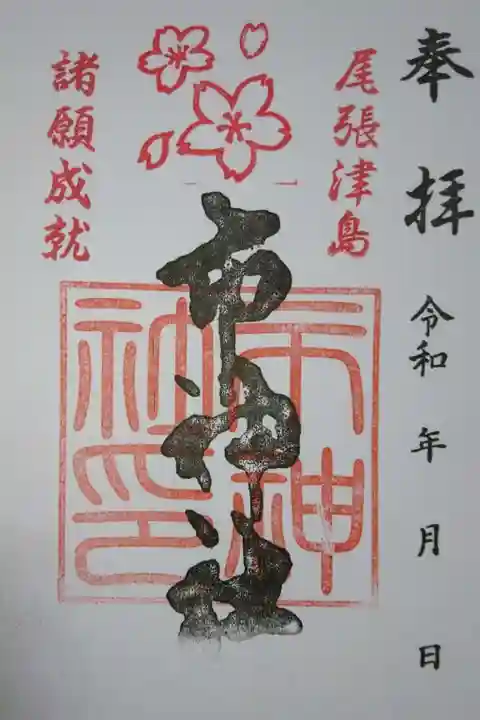 奉拝
令和 年 月 日
尾張津島
市神社
諸願成就
市神
社印